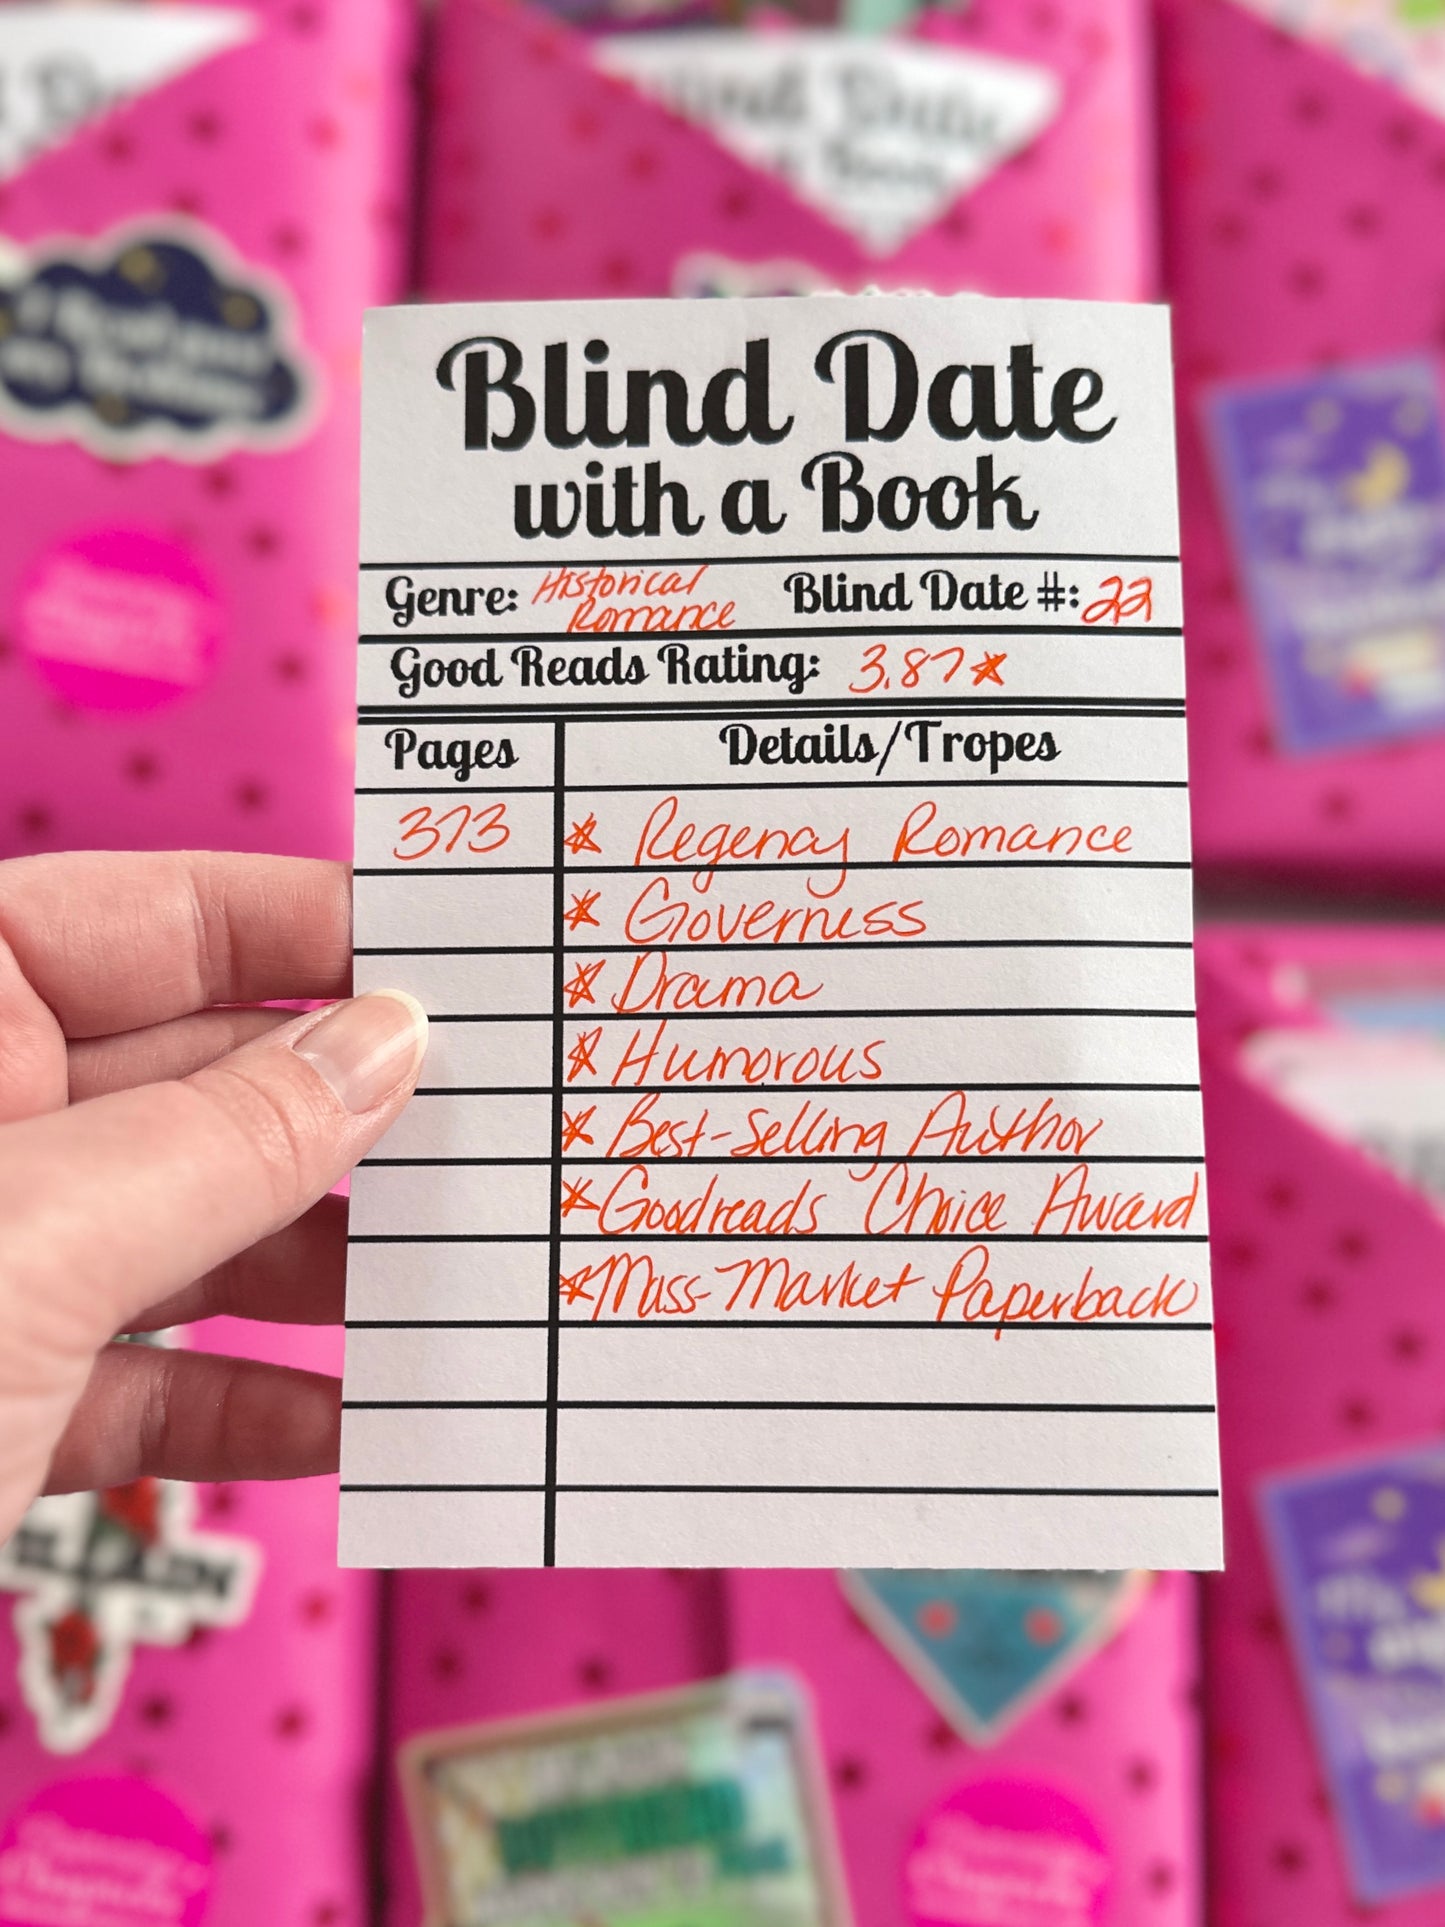 Blind Date
with a Book
Genre: Historical Romance Blind Date #: 22
Good Reads Rating: 3.87★
Pages Details/Tropes
373 ★ Regency Romance
★ Governess
★ Drama
★ Humorous
★ Best-Selling Author
★ Goodreads Choice Award
★ Mass-Market Paperback
Blind Date
Book